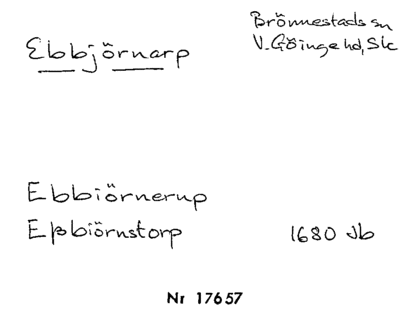 Ebbjörnarp
Brönnestads sn
V. Göinge hd, Sk
Ebbiörnerup
Eþbiörnstorp 1680 Jb
Nr 17657